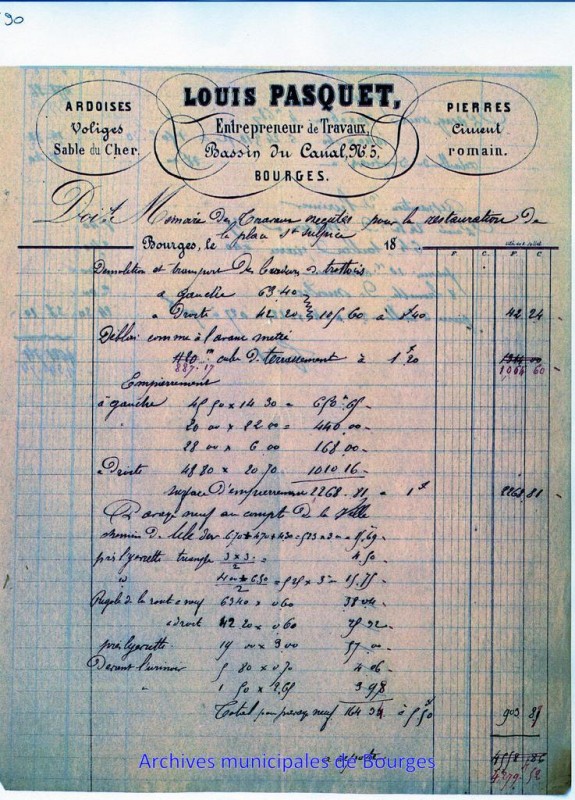 90
ARDOISES
Voliges
Sable du Cher.
LOUIS PASQUET,
Entrepreneur de Travaux,
Bassin du Canal, N° 5,
BOURGES.
PIERRES
Ciment
romain.
Doit Memoire des Travaux executés pour la restauration de
la place St Sulpice
Bourges, le 18
F. C. F. C.
Demolition et transport des bordures de trottoirs
a gauche 63.40
a Droite 42 20 105 60 à 0.40 42 24
Déblai comme à l'avant metré
887.17 cube de terrassement à 1.20 1064 60
Empierrement
à gauche 45 50 x 14 30 = 650.65
20 00 x 22 00 = 440.00
28 00 x 6 00 168.00
à Droite 48 80 x 20 70 1010 16
surface d'empierrement 2268.81 à 1f 2268 81
pavage neuf au compte de la Ville
3 x 3 / 2 4.50
= 525 x 3 = 15.75
63 40 x 0 60 38 04
a droit 42 20 x 0 60 25 32
19 00 x 3 00 57 00
Devant 5 80 x 0 70 4 06
1 50 x 2.65 3 98
Total pour pavage neuf 164 34 à 5.50 903 87
4279.52
Archives municipales de Bourges